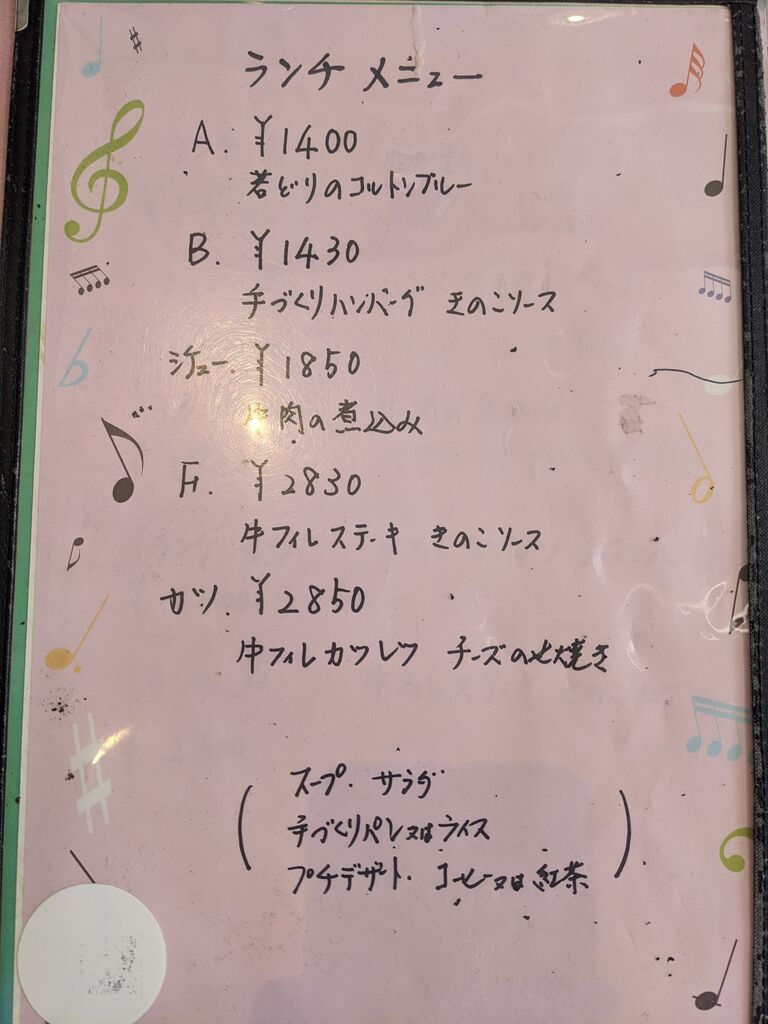 ランチ メニュー
A. ¥1400
若どりのコルドンブルー
B. ¥1430
手づくりハンバーグ きのこソース
シチュー. ¥1850
牛肉の煮込み
F. ¥2830
牛フィレステーキ きのこソース
カツ. ¥2850
牛フィレカツレツ チーズのせ焼き
( スープ. サラダ
手づくりパン又はライス
プチデザート. コーヒー又は紅茶 )